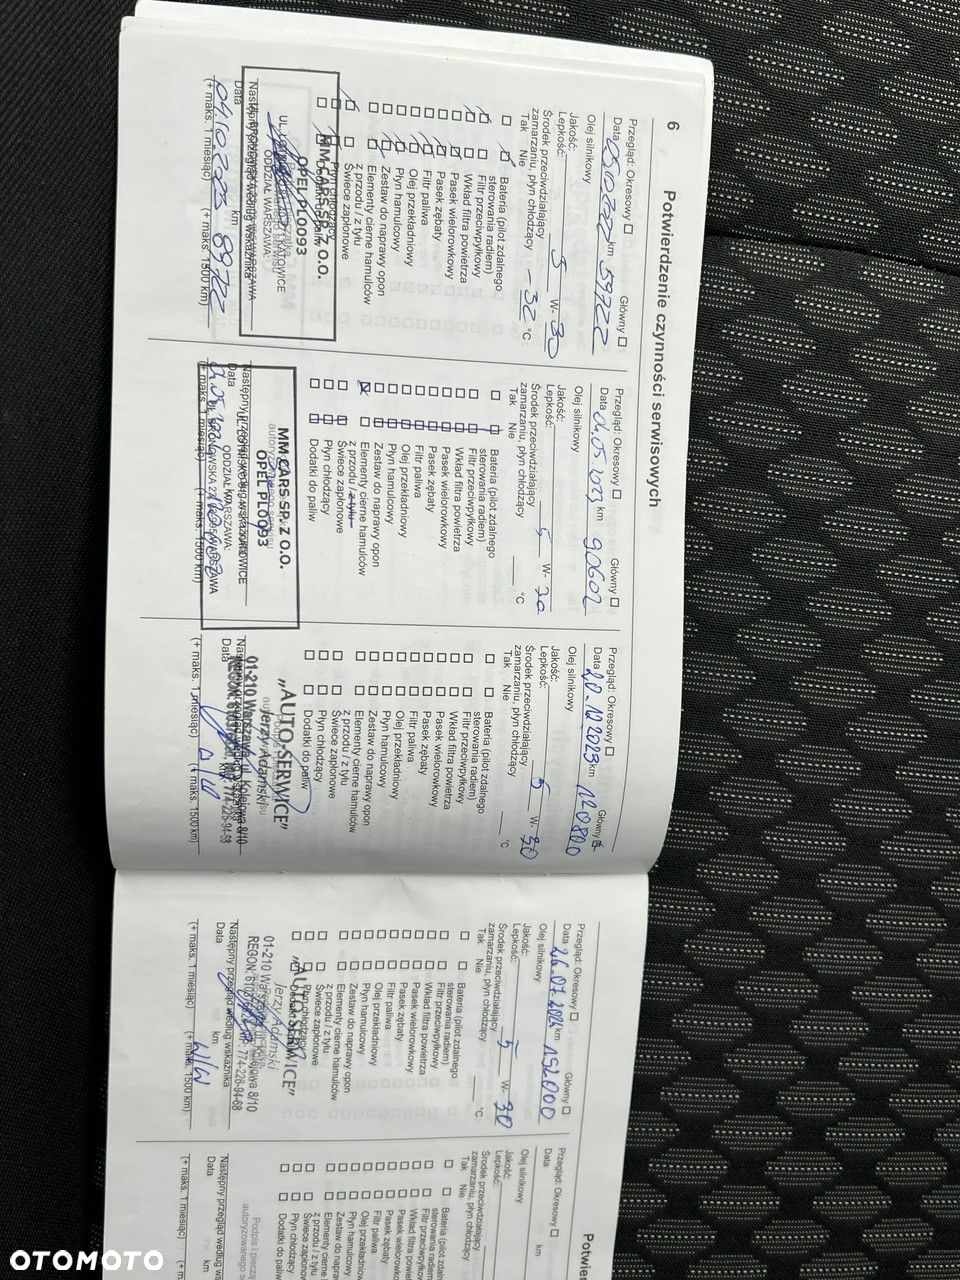 6
Potwierdzenie czynności serwisowych
Przegląd: Okresowy ☐ Główny ☐
Data 05.10.22 km 59722
Olej silnikowy
Jakość:
Lepkość: 5 W- 30
Środek przeciwdziałający
zamarzaniu, płyn chłodzący - 32 °C
Tak Nie
Bateria (pilot zdalnego
sterowania radiem)
Filtr przeciwpyłkowy
Wkład filtra powietrza
Pasek wielorowkowy
Pasek zębaty
Filtr paliwa
Olej przekładniowy
Płyn hamulcowy
Zestaw do naprawy opon
Elementy cierne hamulców
z przodu / z tyłu
Świece zapłonowe
Płyn chłodzący
MM CARS SP. Z O.O.
OPEL PL0093
ODDZIAŁ WARSZAWA:
Następny przegląd według wskaźnika
Data km
04.10.2023 8972
(+ maks. 1 miesiąc) (+ maks. 1500 km)
Przegląd: Okresowy ☐ Główny ☐
Data 2023 km 90602
Olej silnikowy
Jakość:
Lepkość: 5 W- 30
Środek przeciwdziałający
zamarzaniu, płyn chłodzący °C
Tak Nie
Bateria (pilot zdalnego
sterowania radiem)
Filtr przeciwpyłkowy
Wkład filtra powietrza
Pasek wielorowkowy
Pasek zębaty
Filtr paliwa
Olej przekładniowy
Płyn hamulcowy
Zestaw do naprawy opon
Elementy cierne hamulców
z przodu / z tyłu
Świece zapłonowe
Płyn chłodzący
Dodatki do paliw
MM CARS SP. Z O.O.
OPEL PL0093
ODDZIAŁ WARSZAWA:
Data
(+ maks. 1 miesiąc) (+ maks. 1500 km)
Przegląd: Okresowy ☐ Główny
Data 20.12.2023 km 120800
Olej silnikowy
Jakość:
Lepkość: 5 W- 30
Środek przeciwdziałający
zamarzaniu, płyn chłodzący °C
Tak Nie
Bateria (pilot zdalnego
sterowania radiem)
Filtr przeciwpyłkowy
Wkład filtra powietrza
Pasek wielorowkowy
Pasek zębaty
Filtr paliwa
Olej przekładniowy
Płyn hamulcowy
Zestaw do naprawy opon
Elementy cierne hamulców
z przodu / z tyłu
Świece zapłonowe
Płyn chłodzący
Dodatki do paliw
„AUTO-SERWICE"
Jerzy Adamski
01-210 Warszawa, ul. Kolejowa 8/10
Data
(+ maks. 1 miesiąc) (+ maks. 1500 km)
Przegląd: Okresowy ☐ Główny ☐
Data 26.07.2024 km 152000
Olej silnikowy
Jakość:
Lepkość: 5 W- 30
Środek przeciwdziałający
zamarzaniu, płyn chłodzący °C
Tak Nie
Bateria (pilot zdalnego
sterowania radiem)
Filtr przeciwpyłkowy
Wkład filtra powietrza
Pasek wielorowkowy
Pasek zębaty
Filtr paliwa
Olej przekładniowy
Płyn hamulcowy
Zestaw do naprawy opon
Elementy cierne hamulców
z przodu / z tyłu
Świece zapłonowe
Płyn chłodzący
„AUTO-SERWICE"
Jerzy Adamski
01-210 Warszawa, Kolejowa 8/10
774-226-94-68
Następny przegląd według wskaźnika
Data km
(+ maks. 1 miesiąc) (+ maks. 1500 km)
Potwier
Przegląd: Okresowy ☐
Data km
Olej silnikowy
Jakość:
Lepkość:
Środek przeciwdziałający
zamarzaniu, płyn chłodząc
Tak Nie
Bateria (pilot zdal
sterowania radiem
Filtr przeciwpyłk
Wkład filtra po
Pasek wielor
Pasek zębaty
Filtr paliwa
Olej przekład
Płyn hamulco
Zestaw do na
Elementy cier
z przodu / z ty
Świece zapło
Płyn chłodzący
Dodatki do pali
Podpis i pieczą
autoryzowanego se
Następny przegląd według ws
Data km
(+ maks. 1 miesiąc) (+ m
OTOMOTO